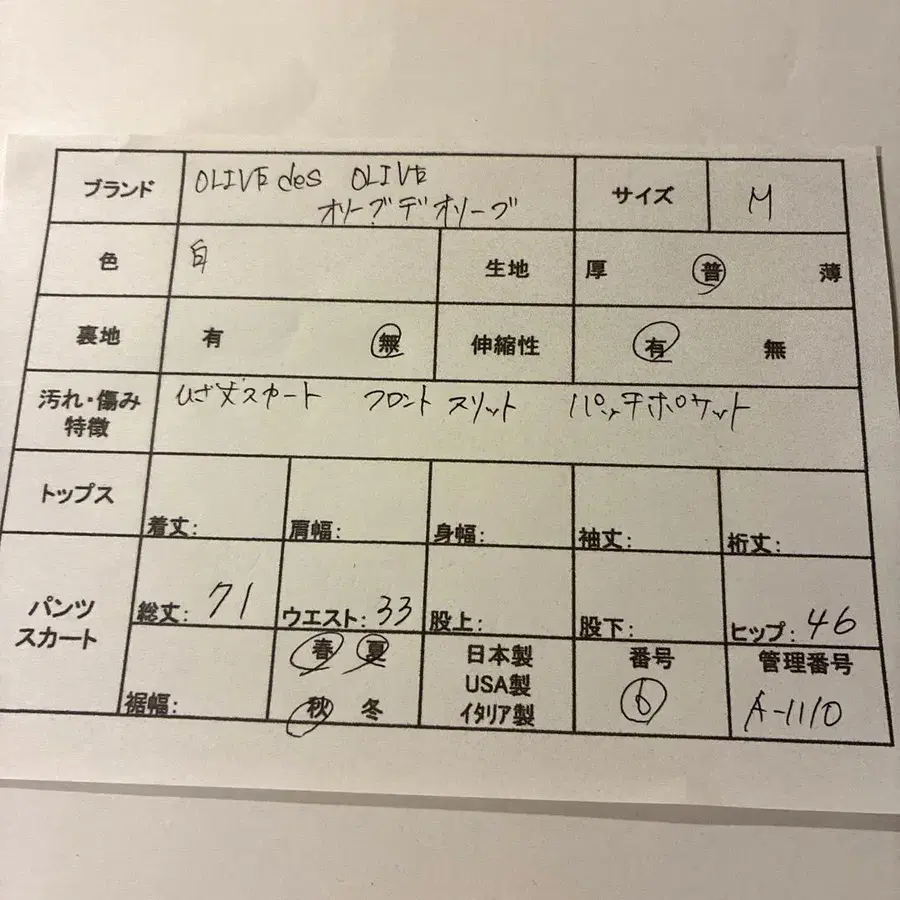 ブランド OLIVE des OLIVE サイズ M
オリーブデオリーブ
色 白 生地 厚 普 薄
裏地 有 無 伸縮性 有 無
汚れ・傷み ひざ丈スカート フロントスリット パッチポケット
特徴
トップス 着丈: 肩幅: 身幅: 袖丈: 裄丈:
パンツ
スカート
総丈: 71 ウエスト: 33 股上: 股下: ヒップ: 46
裾幅: 春 夏 日本製 番号 管理番号
USA製
秋 冬 イタリア製 6 A-1110